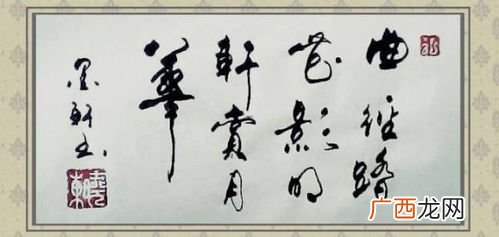 曲径踏
花影明
轩赏月
华
墨轩书
广西龙网